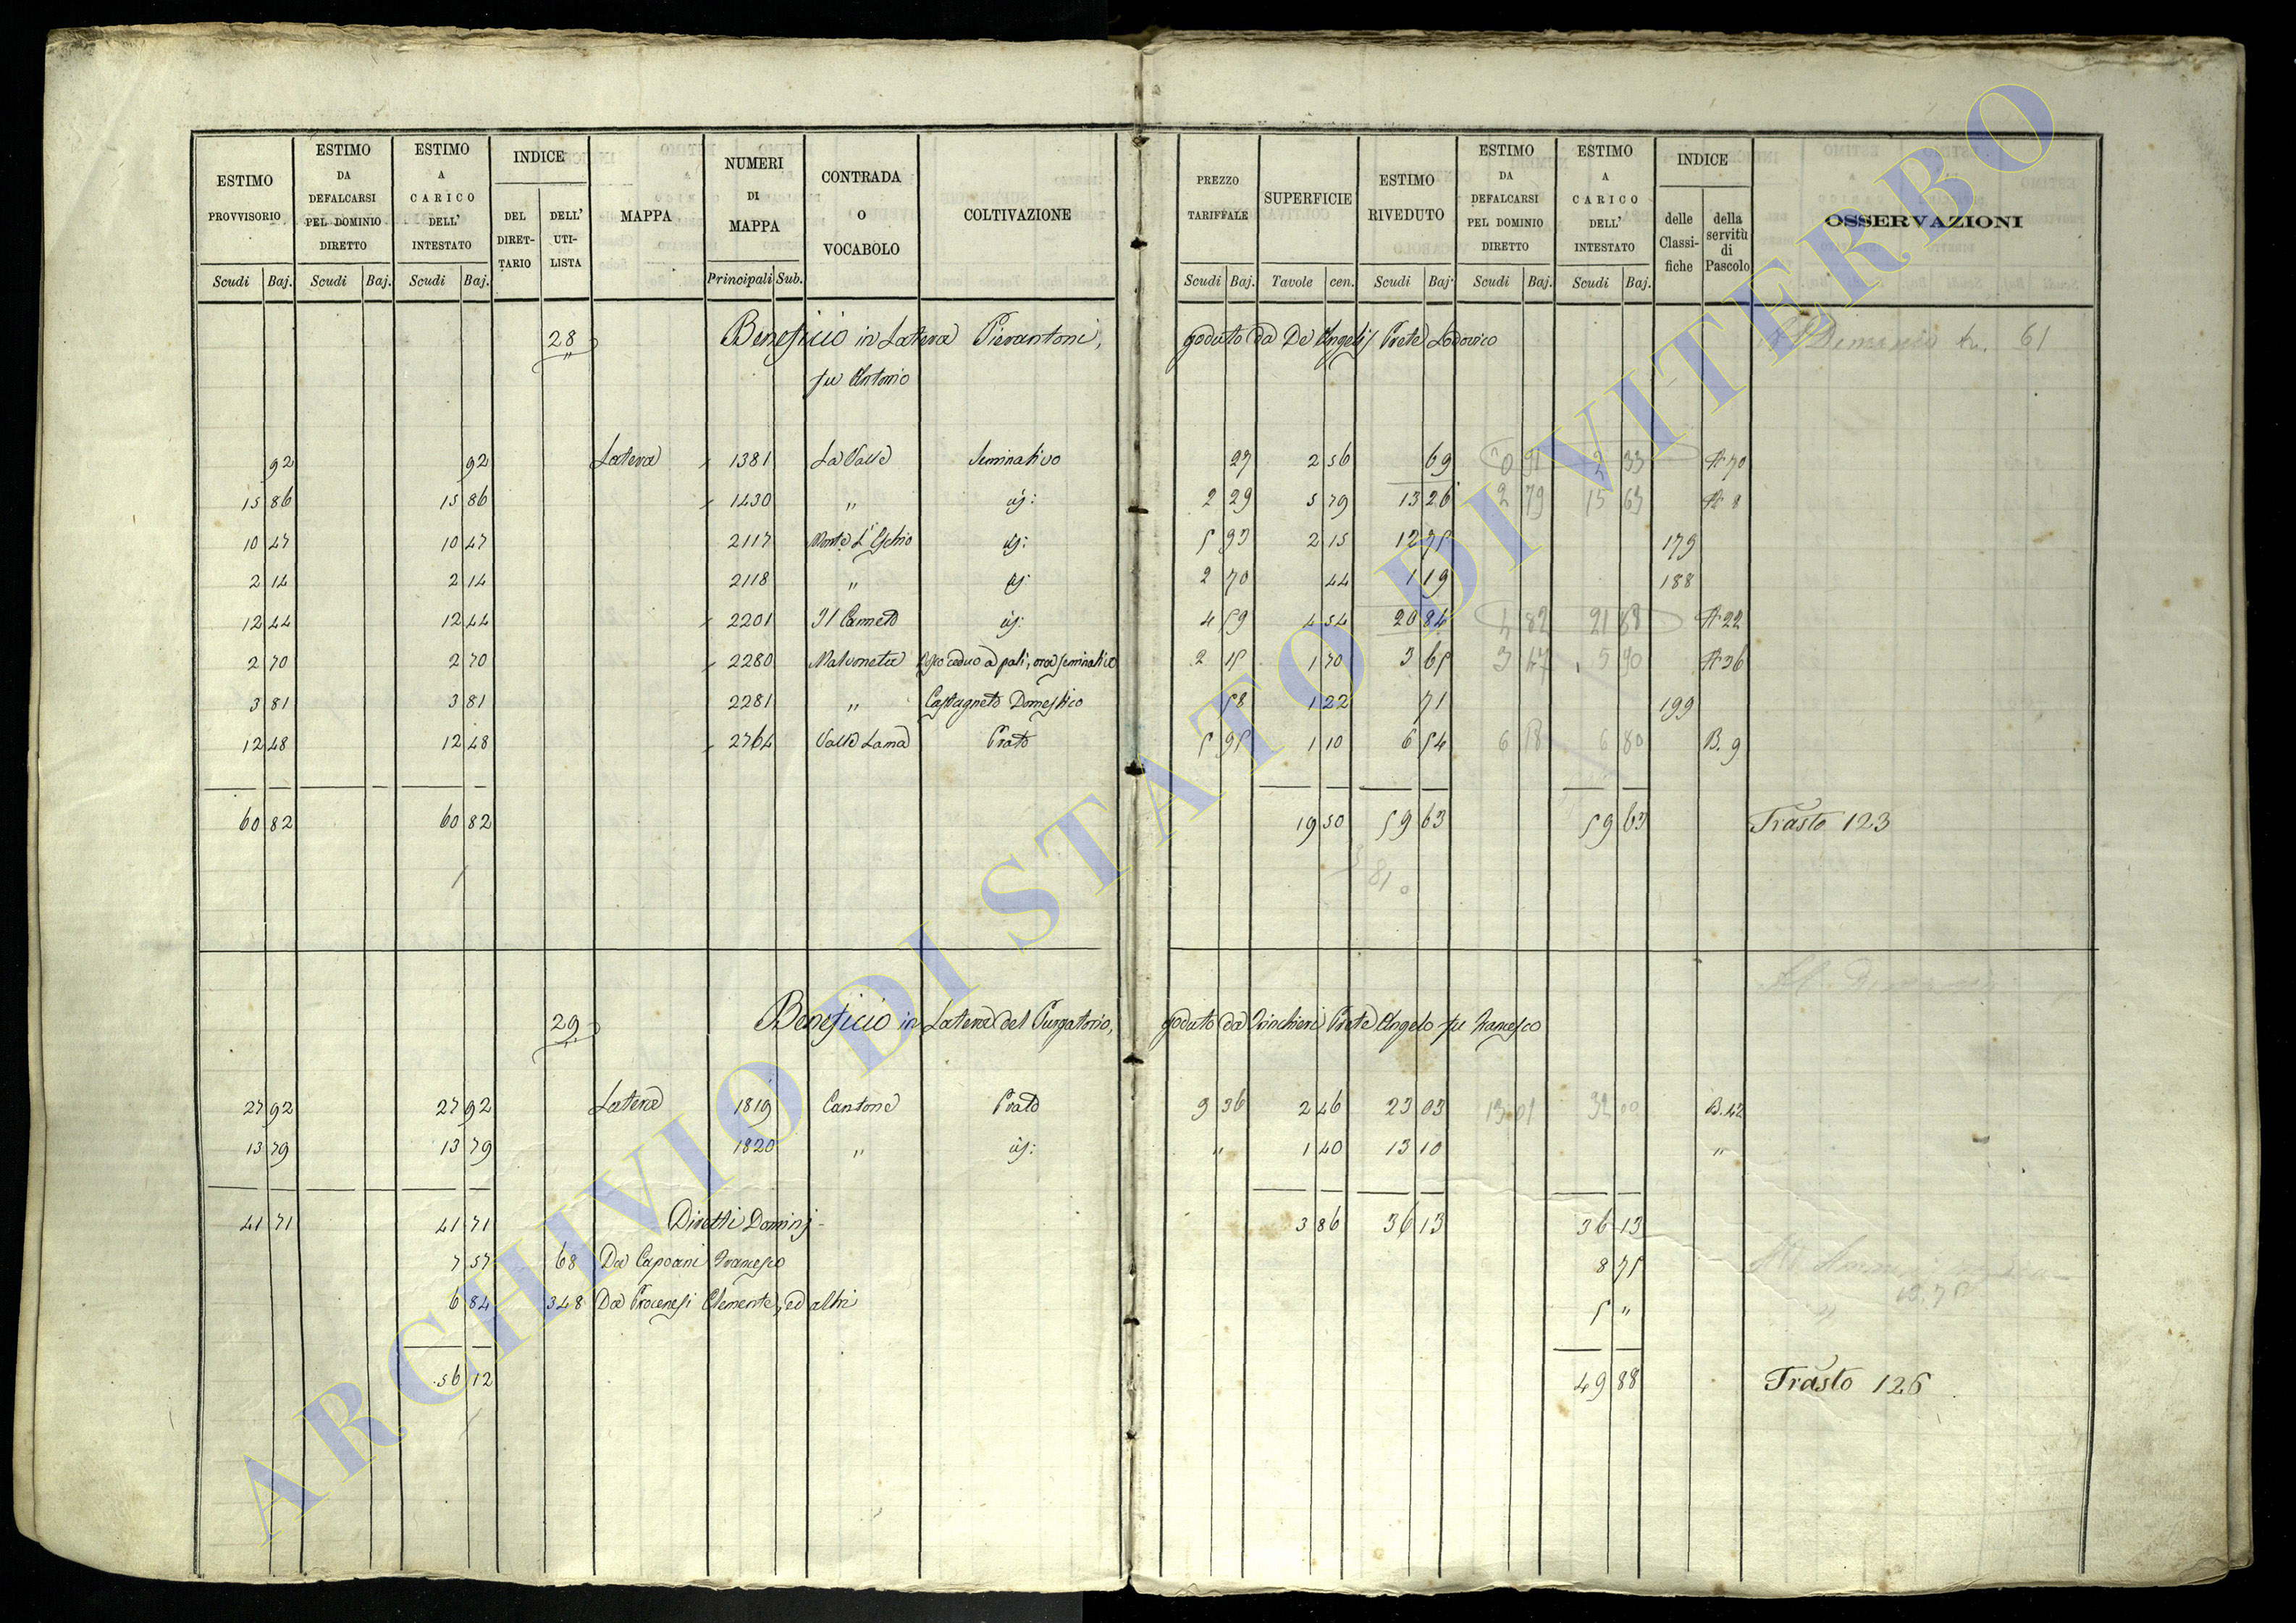 ESTIMO PROVVISORIO | ESTIMO DA DEFALCARSI PEL DOMINIO DIRETTO | ESTIMO A CARICO DELL' INTESTATO | INDICE | MAPPA | NUMERI DI MAPPA | CONTRADA O VOCABOLO | COLTIVAZIONE | PREZZO TARIFFALE | SUPERFICIE | ESTIMO RIVEDUTO | ESTIMO DA DEFALCARSI PEL DOMINIO DIRETTO | ESTIMO A CARICO DELL' INTESTATO | INDICE | OSSERVAZIONI
DEL DIRETTARIO | DELL' UTILISTA | delle Classifiche | della servitù di Pascolo
Scudi | Baj. | Scudi | Baj. | Scudi | Baj. | Principali | Sub. | Scudi | Baj. | Tavole | cen. | Scudi | Baj. | Scudi | Baj. | Scudi | Baj.
28 Beneficio in Latera Pierantoni, goduto da De Angelis Prete Lodovico 61
fu Antonio
92 | 92 | Latera | 1381 | La Valle | Seminativo | 27 | 2 56 | 69 | 2 33 | A 70
15 86 | 15 86 | 1430 | " | id: | 2 29 | 5 79 | 13 26 | 2 79 | 15 63 | A 8
10 47 | 10 47 | 2117 | Monte L'Eschio | id: | 5 93 | 2 15 | 12 75 | 179
2 14 | 2 14 | 2118 | " | id: | 2 70 | 44 | 1 19 | 188
12 44 | 12 44 | 2201 | Il Canneto | id: | 4 59 | 4 54 | 20 84 | 82 | 21 | A 22
2 70 | 2 70 | 2280 | Malvoneta | Bosco ceduo a pali, ora seminativo | 2 15 | 1 70 | 3 65 | 3 47 | 5 90 | A 36
3 81 | 3 81 | 2281 | " | Castagneto Domestico | 58 | 1 22 | 71 | 199
12 48 | 12 48 | 2764 | Valle Lama | Prato | 5 95 | 1 10 | 6 54 | 6 80 | B. 9
60 82 | 60 82 | 19 50 | 59 63 | 59 63 | Trasto 123
81
29 Beneficio in Latera del Purgatorio, goduto da Prete Angelo fu Francesco
27 92 | 27 92 | Latera | 1819 | Cantone | Prato | 9 36 | 2 46 | 23 03 | B. 42
13 79 | 13 79 | 1820 | " | id: | " | 1 40 | 13 10 | "
41 71 | 41 71 | Diretti Dominj | 3 86 | 36 13 | 36 13
7 57 | 68 | Da Capoani Francesco | 8 75
6 84 | 348 | Da Procenesi Clemente, ed altri | 5 "
56 12 | 49 88 | Trasto 126
ARCHIVIO DI STATO DI VITERBO